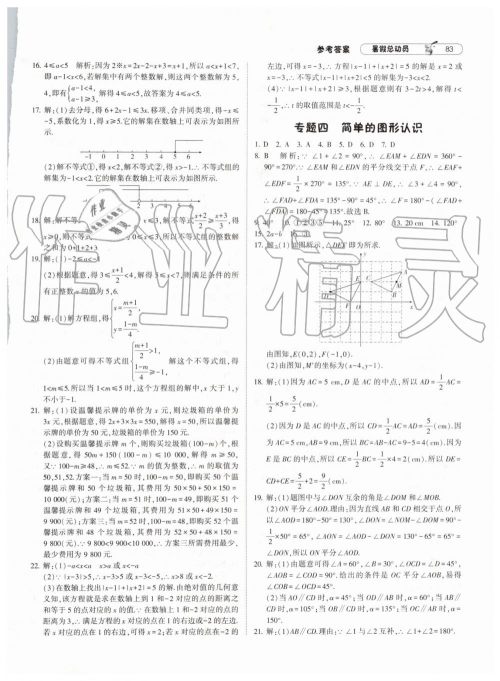 参考答案 暑假总动员 83
16. 4≤a<5 解析:因为2※x=2x-2-x+3=x+1,所以a<x+1<7,
即a-1<x<6,若解集中有两个整数解,则这两个整数解为5,
4,即有{a-1<4, a-1≥3, 解得4≤a<5,故答案为4≤a<5.
17. 解:(1)去分母,得6+2x-1≤3x.移项,合并同类项,得-x≤
-5,系数化为1,得x≥5.它的解集在数轴上可表示为如图所
示.
-1 0 1 2 3 4 5 6
(2)解不等式①,得x<2,解不等式②,得x>-1.∴不等式组的
解集为-1<x<2.它的解集在数轴上可表示为如图所示.
18. 解:解不等式
x≥0,则不等式
之和为0+1+2+3
19. 解:(1)-2≤a<-1
(2)根据题意,得3≤(x+1)/2<4,解得5≤x<7,则满足条件的所
有正整数x的值为5,6.
20. 解:(1)解方程组,得{x=(m+1)/2, y=(1-m)/4.
(2)由题意可得不等式组{(m+1)/2>1, (1-m)/4≥-1, 解这个不等式组,得
1<m≤5.所以当1<m≤5时,这个方程组的解中,x大于1,y
不小于-1.
21. 解:(1)设温馨提示牌的单价为x元,则垃圾箱的单价为
3x元,根据题意,得2x+3×3x=550,解得x=50,所以温馨提
示牌的单价为50元,垃圾箱的单价为150元.
(2)设购买温馨提示牌m个,则购买垃圾箱(100-m)个,根
据题意,得50m+150(100-m)≤10 000,解得m≥50,
又∵100-m≥48,∴m≤52.∵m的值为整数,∴m的取值为
50,51,52.方案一:当m=50时,100-m=50,即购买50个温
馨提示牌和50个垃圾箱,其费用为50×50+50×150=
10 000(元);方案二:当m=51时,100-m=49,即购买51个
温馨提示牌和49个垃圾箱,其费用为51×50+49×150=
9 900(元);方案三:当m=52时,100-m=48,即购买52个温
馨提示牌和48个垃圾箱,其费用为52×50+48×150=
9 800(元).∵9 800<9 900<10 000,∴方案三所需费用最少,
最少费用为9 800元.
22. 解:(1)-a<x<a x>a或x<-a
(2)∵|x-3|>5,∴x-3>5或x-3<-5,∴x>8或x<-2.
(3)在数轴上找出|x-1|+|x+2|=5的解.由绝对值的几何意
义知,该方程就是求在数轴上到1和-2对应的点的距离之
和等于5的点对应的x的值.∵在数轴上1和-2对应的点的
距离为3,∴满足方程的x对应的点在1的右边或-2的左边.
若x对应的点在1的右边,可得x=2;若x对应的点在-2的
左边,可得x=-3,∴方程|x-1|+|x+2|=5的解是x=2或
x=-3,∴不等式|x-1|+|x+2|<5的解集为-3<x<2.
(4)∵|x-1|+|x+2|≥3,根据题意则有3-2t>4,解得t<
-1/2,∴t的取值范围是t<-1/2.
专题四 简单的图形认识
1. D 2. A 3. A 4. B 5. D 6. D 7. D
8. B 解析:∵∠1+∠2=90°,∴∠EAM+∠EDN=360°-
90°=270°.∵∠EAM和∠EDN的平分线交于点F,∴∠EAF+
∠EDF=1/2×270°=135°.∵AE⊥DE,∴∠3+∠4=90°,
∴∠FAD+∠FDA=135°-90°=45°,∴∠F=180°-(∠FAD+
∠FDA)=180°-45°=135°.故选B.
11. 25° 12. 80° 13. 20 cm 14. 120°
15. 2a-b
17. 解:(1)如图所示,△DEF即为所求.
由图知,E(0,2),F(-1,0).
(2)由图知,M′的坐标为(x-4,y-1).
18. 解:(1)因为AC=5 cm,D是AC的中点,所以AD=1/2AC=
1/2×5=5/2(cm).
(2)因为D是AC的中点,所以CD=1/2AC=AD=5/2(cm).因
为AC=5 cm,AB=9 cm,所以BC=AB-AC=9-5=4(cm).因为
E是BC的中点,所以CE=1/2BC=1/2×4=2(cm).所以DE=
CD+CE=5/2+2=9/2(cm).
19. 解:(1)题图中与∠DON互余的角是∠DOM和∠MOB.
(2)ON平分∠AOD.理由:因为直线AB和CD相交于点O,所
以∠AOD=180°-50°=130°,∠DON=∠NOM-∠DOM=90°-
1/2×50°=65°,∠AON=∠AOD-∠DON=130°-65°=65°=
∠DON,所以ON平分∠AOD.
20. 解:(1)由题意可得∠A=60°,∠B=30°,∠OCD=∠D=45°,
∠AOB=∠COD=90°.给出的条件是OC平分∠AOB,易得
∠COB=∠OCD=45°.
(2)当AO∥CD时,α=45°;当OD∥AB时,α=60°;当AB∥
CD时,α=105°;当OB∥CD时,α=135°;当OC∥AB时,α=
150°.
21. 解:(1)AB∥CD.理由:∵∠1与∠2互补,∴∠1+∠2=180°.